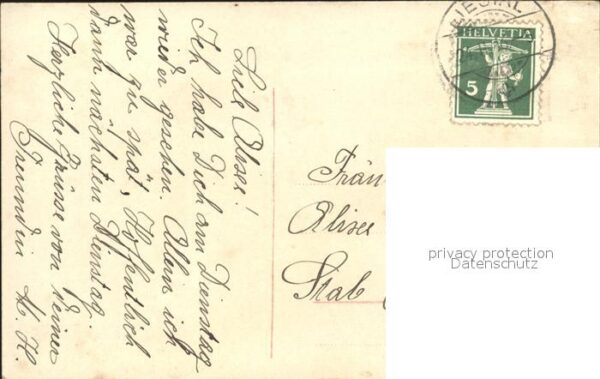 Liebe Aliser!
Ich habe Dich am Dienstag
wieder gesehen. Allein ich
war zu spät, Hoffentlich
dann nächsten Dienstag.
Herzliche Grüsse von Deiner
Freundin M. H.
LIESTAL
HELVETIA
5
Frän
Aliser
Stab
privacy protection
Datenschutz